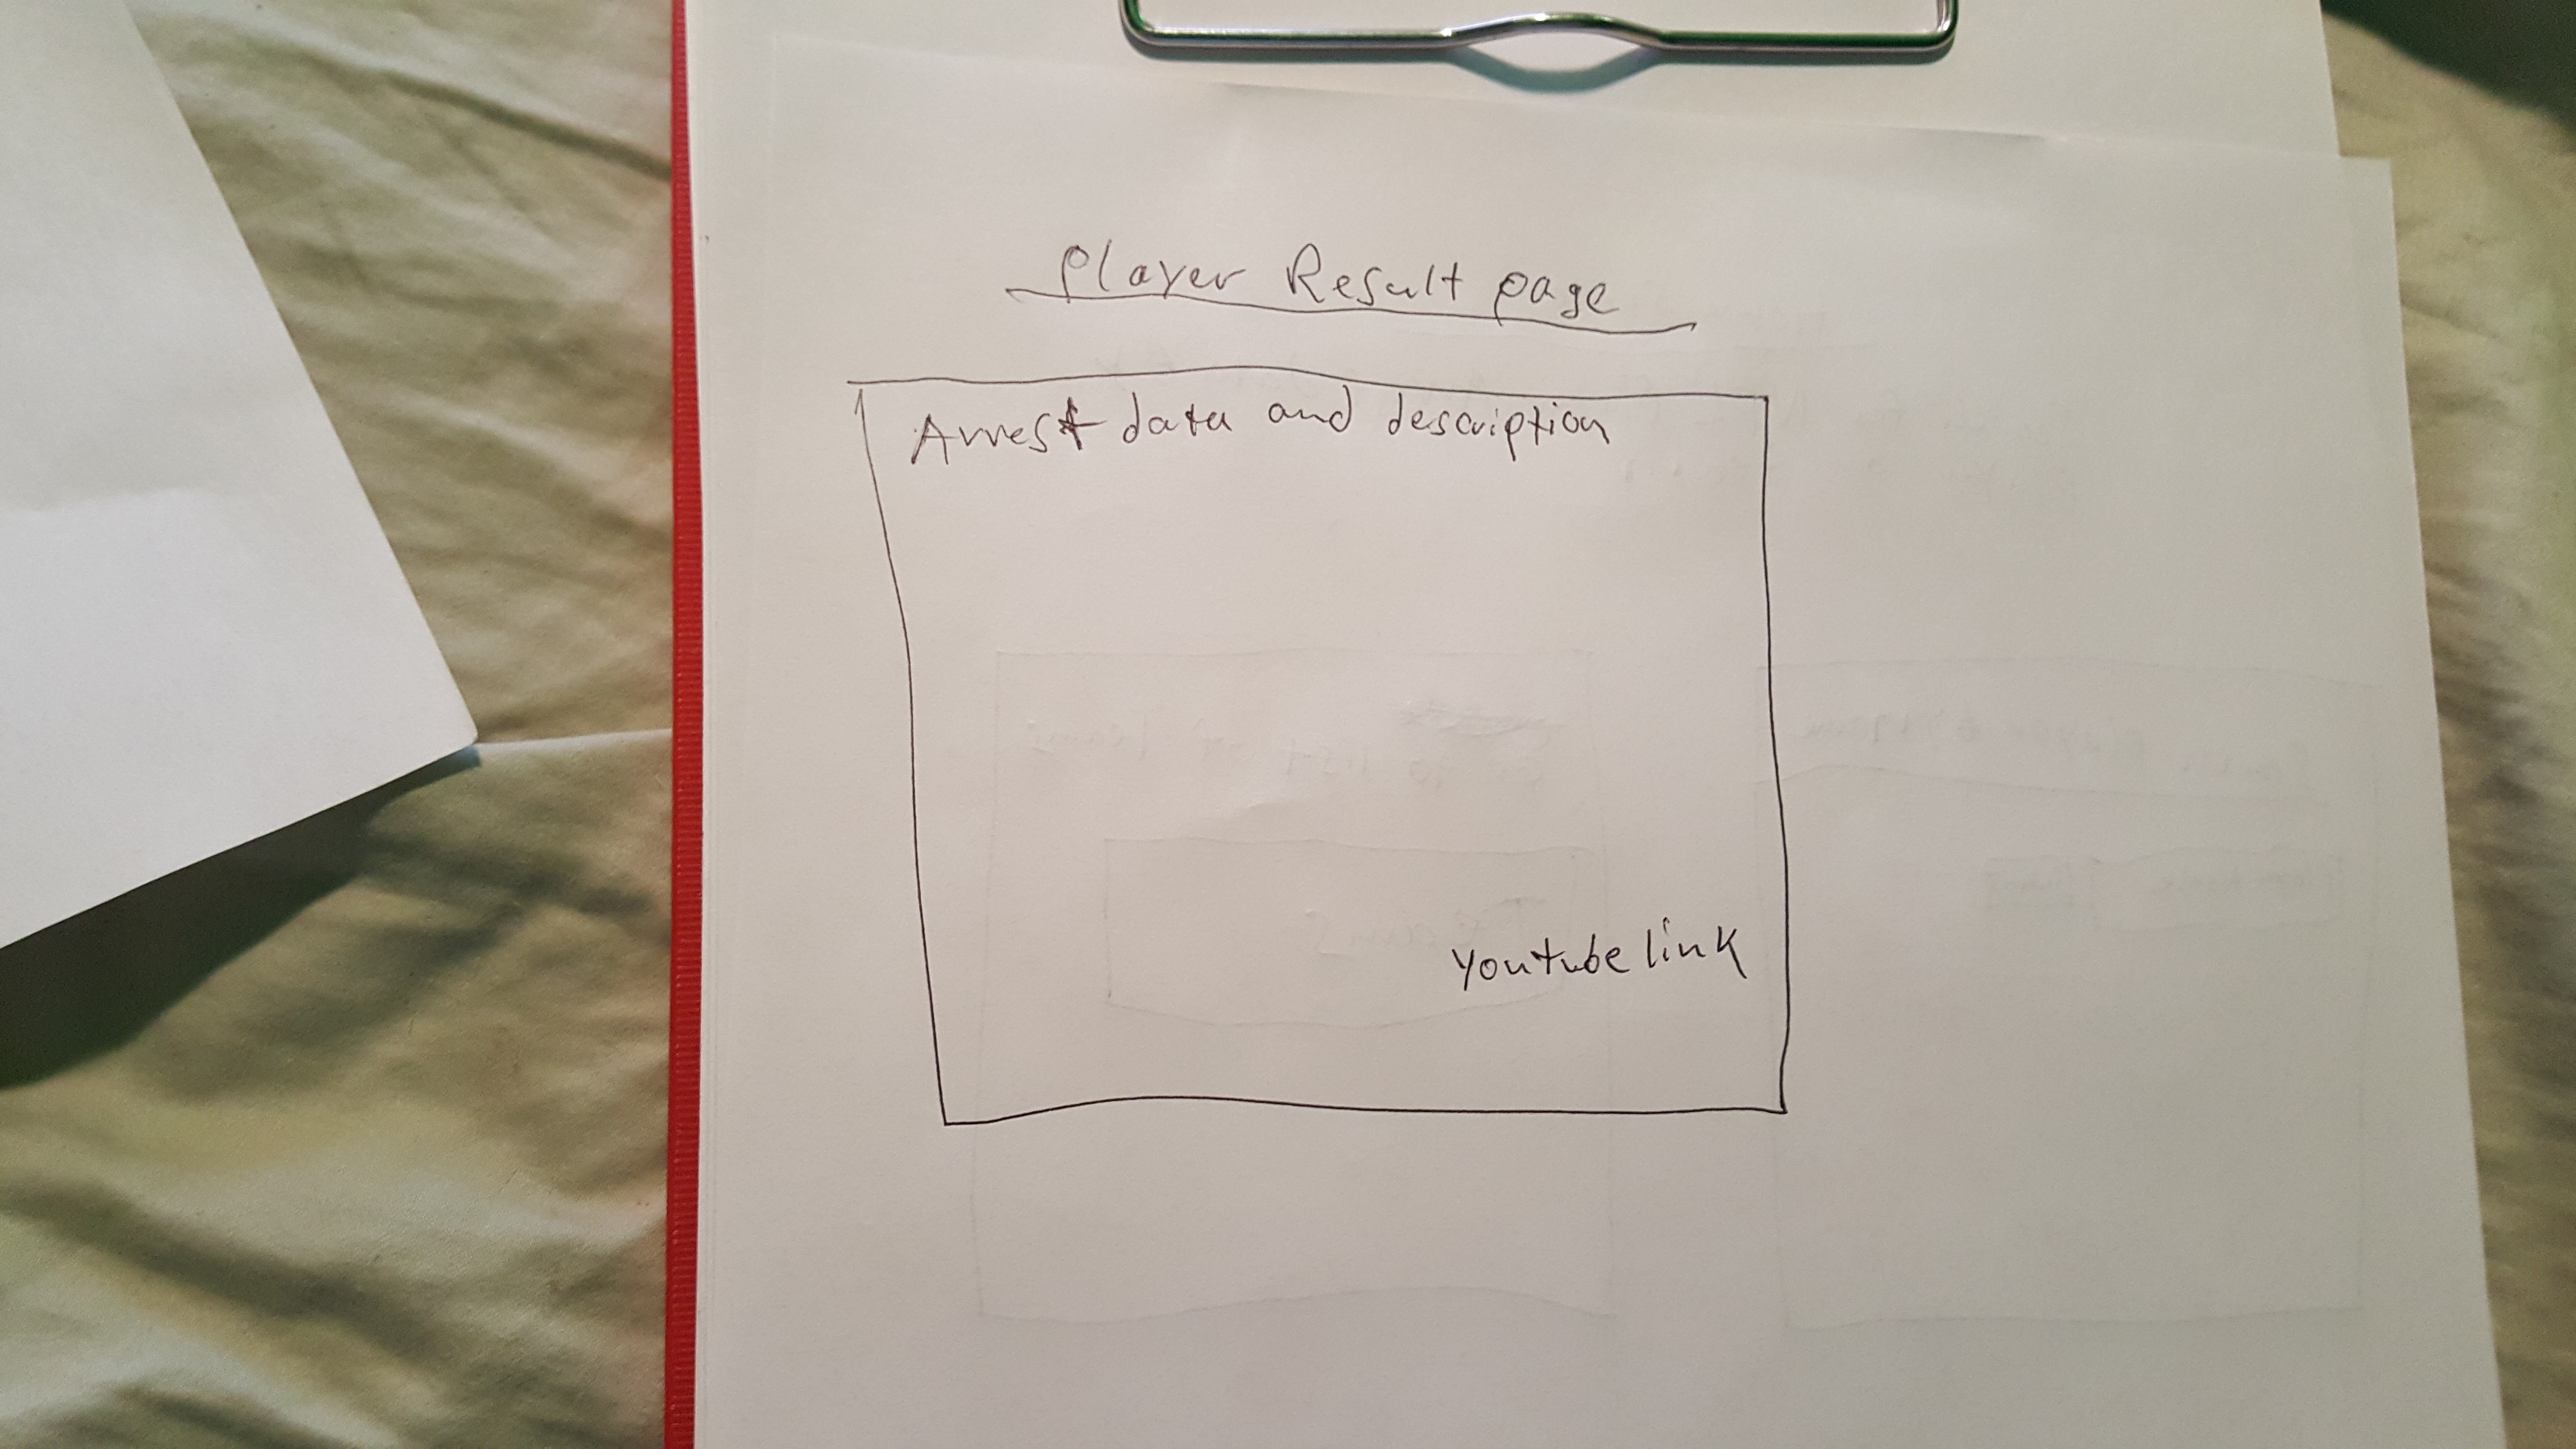 Player Result page
Arrest data and description
Youtube link